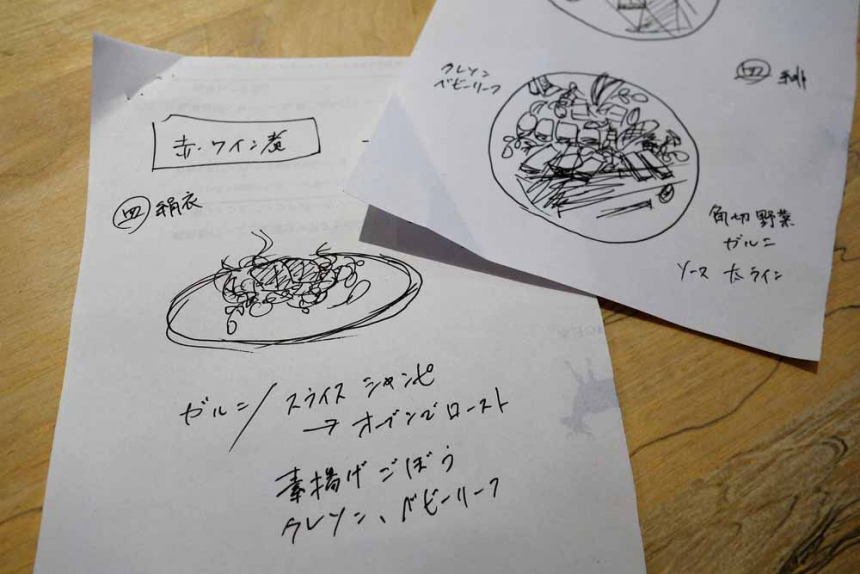 赤ワイン煮
皿 絹衣
ガルニ/スライス シャンピ
→オーブンでロースト
素揚げごぼう
クレソン、ベビーリーフ
クレソン
ベビーリーフ
皿
角切野菜
ガルニ
ソース 太ライン